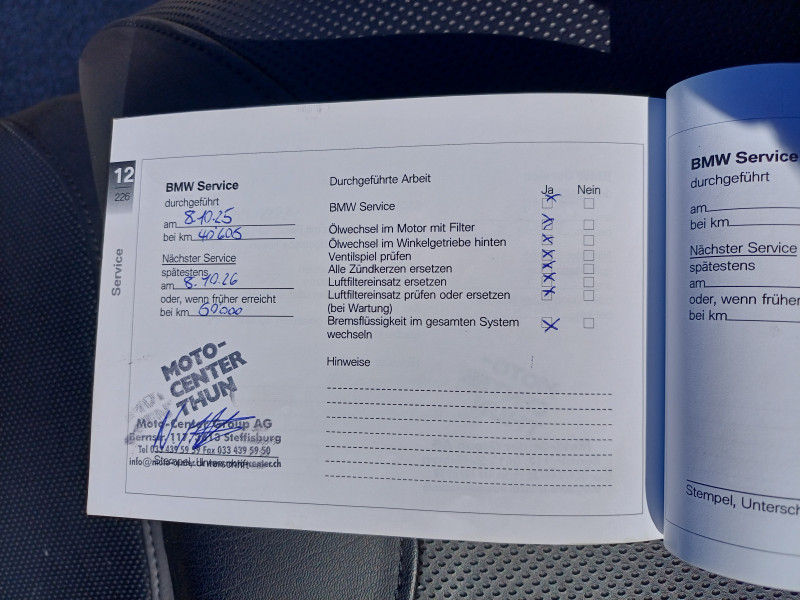 12
226
Service
BMW Service
durchgeführt
am 8.10.25
bei km 40'605
Nächster Service
spätestens
am 8.10.26
oder, wenn früher erreicht
bei km
MOTO-
CENTER
THUN
Moto-Center Group AG
Steffisburg
Tel 033 439 59 Fax 033 439 59 50
Stempel, Unterschrift
Durchgeführte Arbeit
Ja Nein
BMW Service
Ölwechsel im Motor mit Filter
Ölwechsel im Winkelgetriebe hinten
Ventilspiel prüfen
Alle Zündkerzen ersetzen
Luftfiltereinsatz ersetzen
Luftfiltereinsatz prüfen oder ersetzen
(bei Wartung)
Bremsflüssigkeit im gesamten System
wechseln
Hinweise
BMW Service
durchgeführt
am
bei km
Nächster Service
spätestens
am
oder, wenn früher
bei km
Stempel, Untersch